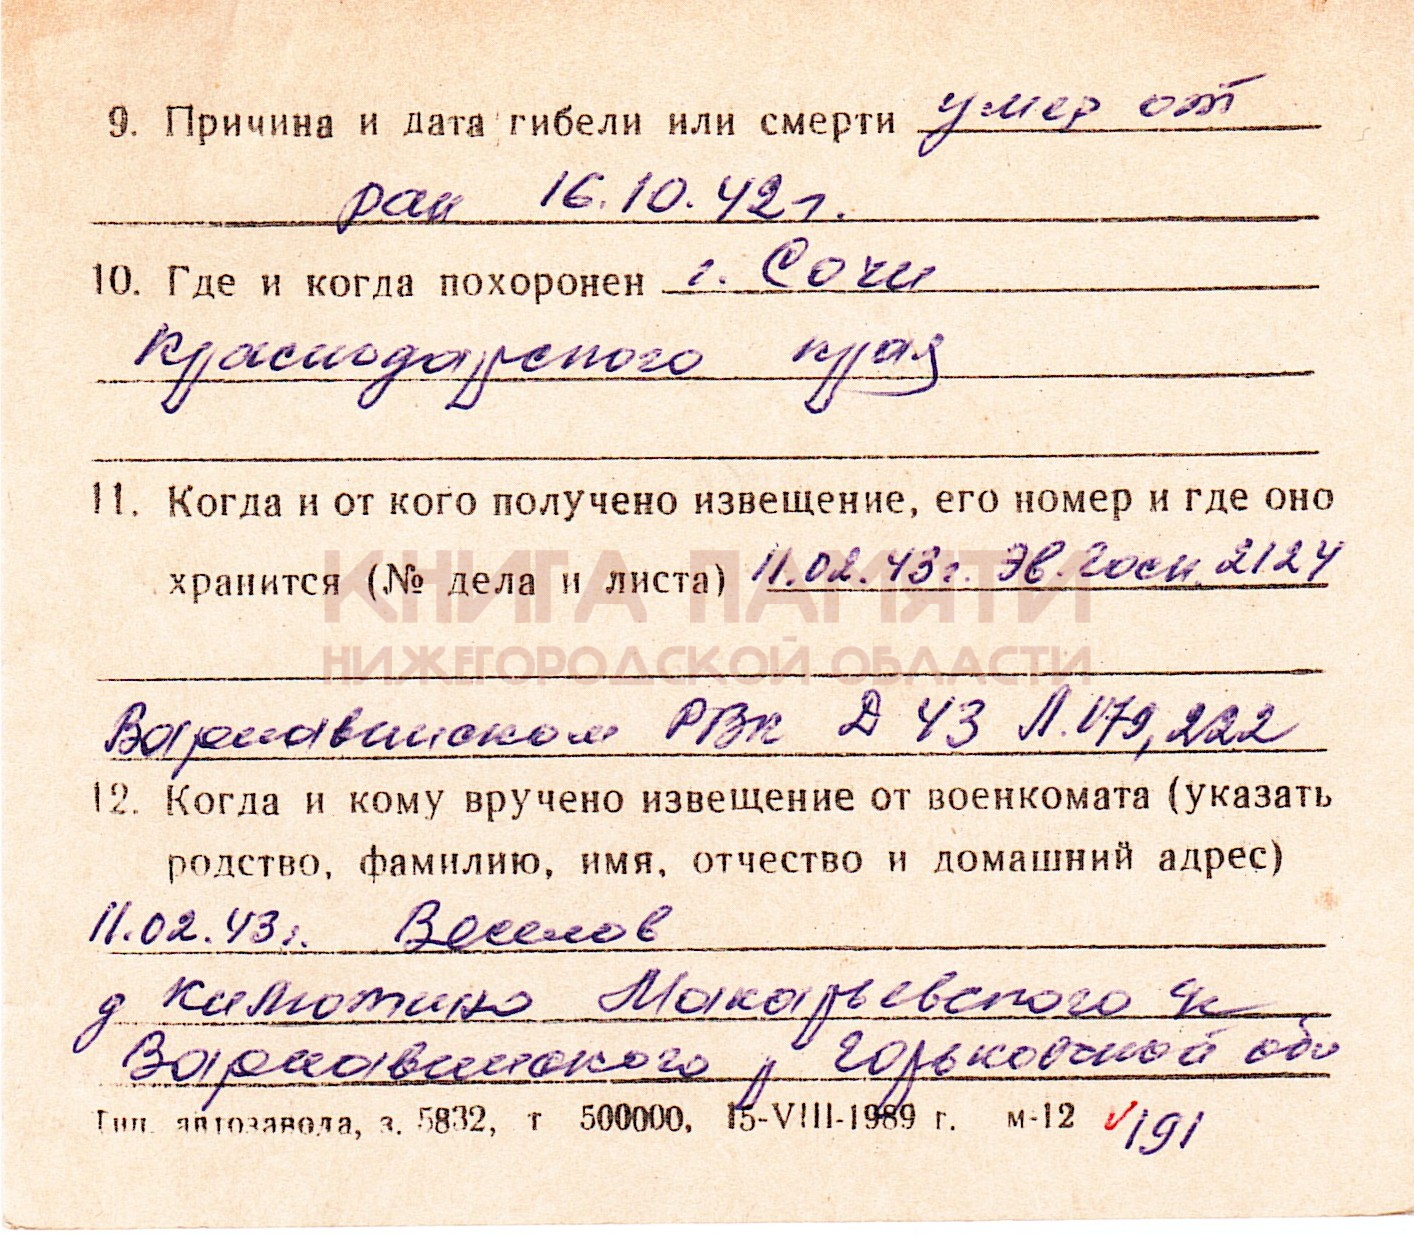 9. Причина и дата гибели или смерти умер от
ран 16.10.42г.
10. Где и когда похоронен г. Сочи
Краснодарского края
11. Когда и от кого получено извещение, его номер и где оно
хранится (№ дела и листа) 11.02.43г. Эв. госп. 2124
КНИГА ПАМЯТИ
НИЖЕГОРОДСКОЙ ОБЛАСТИ
Варнавинском РВК Д 43 Л. 179, 222
12. Когда и кому вручено извещение от военкомата (указать
родство, фамилию, имя, отчество и домашний адрес)
11.02.43г. Веселов
д Макарьевского
Варнавинского р Горьковской обл
Тип. автозавода, з. 5832, т 500000, 15-VIII-1989 г. м-12 191